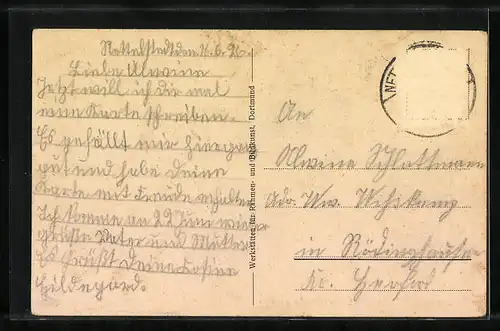 Nettelstedt den 21.6.26.
Liebe Alwine
Jetzt will ich dir mal
eine Karte schreiben.
Es gefällt mir hier ganz
gut und habe Deine
Karte mit Freude erhalten
Ich komme am 29 Juni wieder
grüße Vater und Mutter
Es grüßt Deine Cosine
Hildegard.
Werkstätten für Rahmen- und Bildkunst, Dortmund
NET
An
Alwine Schlottmann
Adr. Ww.
in Rödinghausen
Kr. Herford